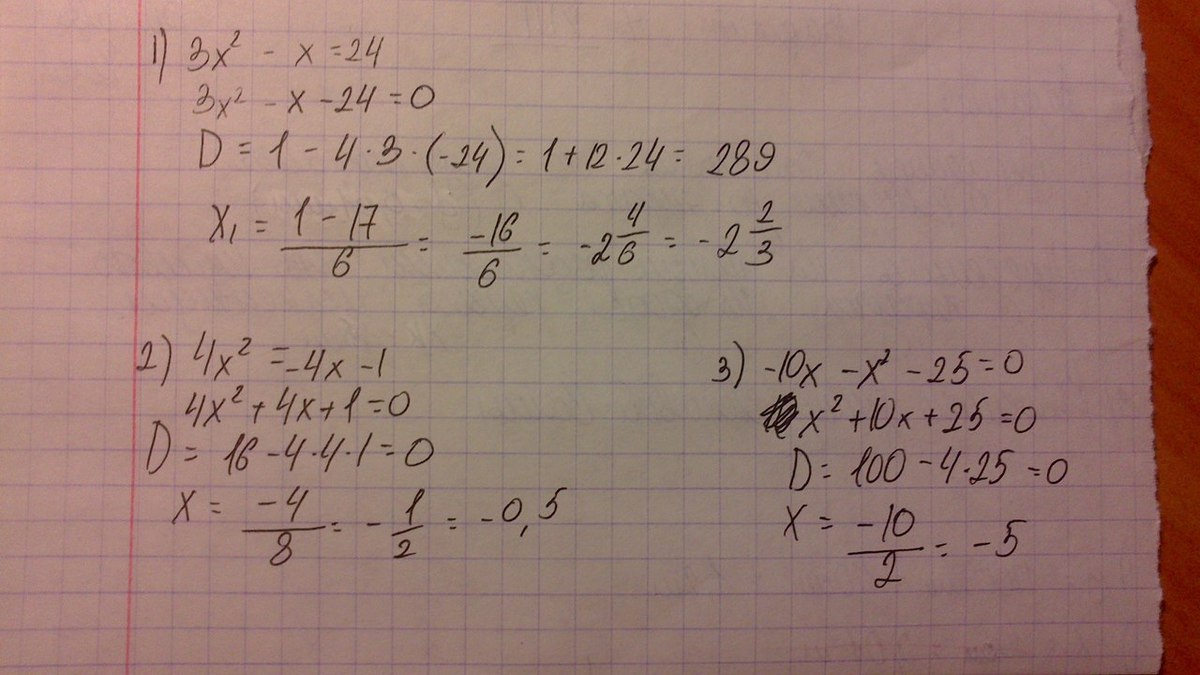 1) 3x² - x = 24
3x² - x - 24 = 0
D = 1 - 4·3·(-24) = 1 + 12·24 = 289
x₁ = (1 - 17)/6 = -16/6 = -2 4/6 = -2 2/3
2) 4x² = -4x - 1
4x² + 4x + 1 = 0
D = 16 - 4·4·1 = 0
x = -4/8 = -1/2 = -0,5
3) -10x - x² - 25 = 0
x² + 10x + 25 = 0
D = 100 - 4·25 = 0
x = -10/2 = -5